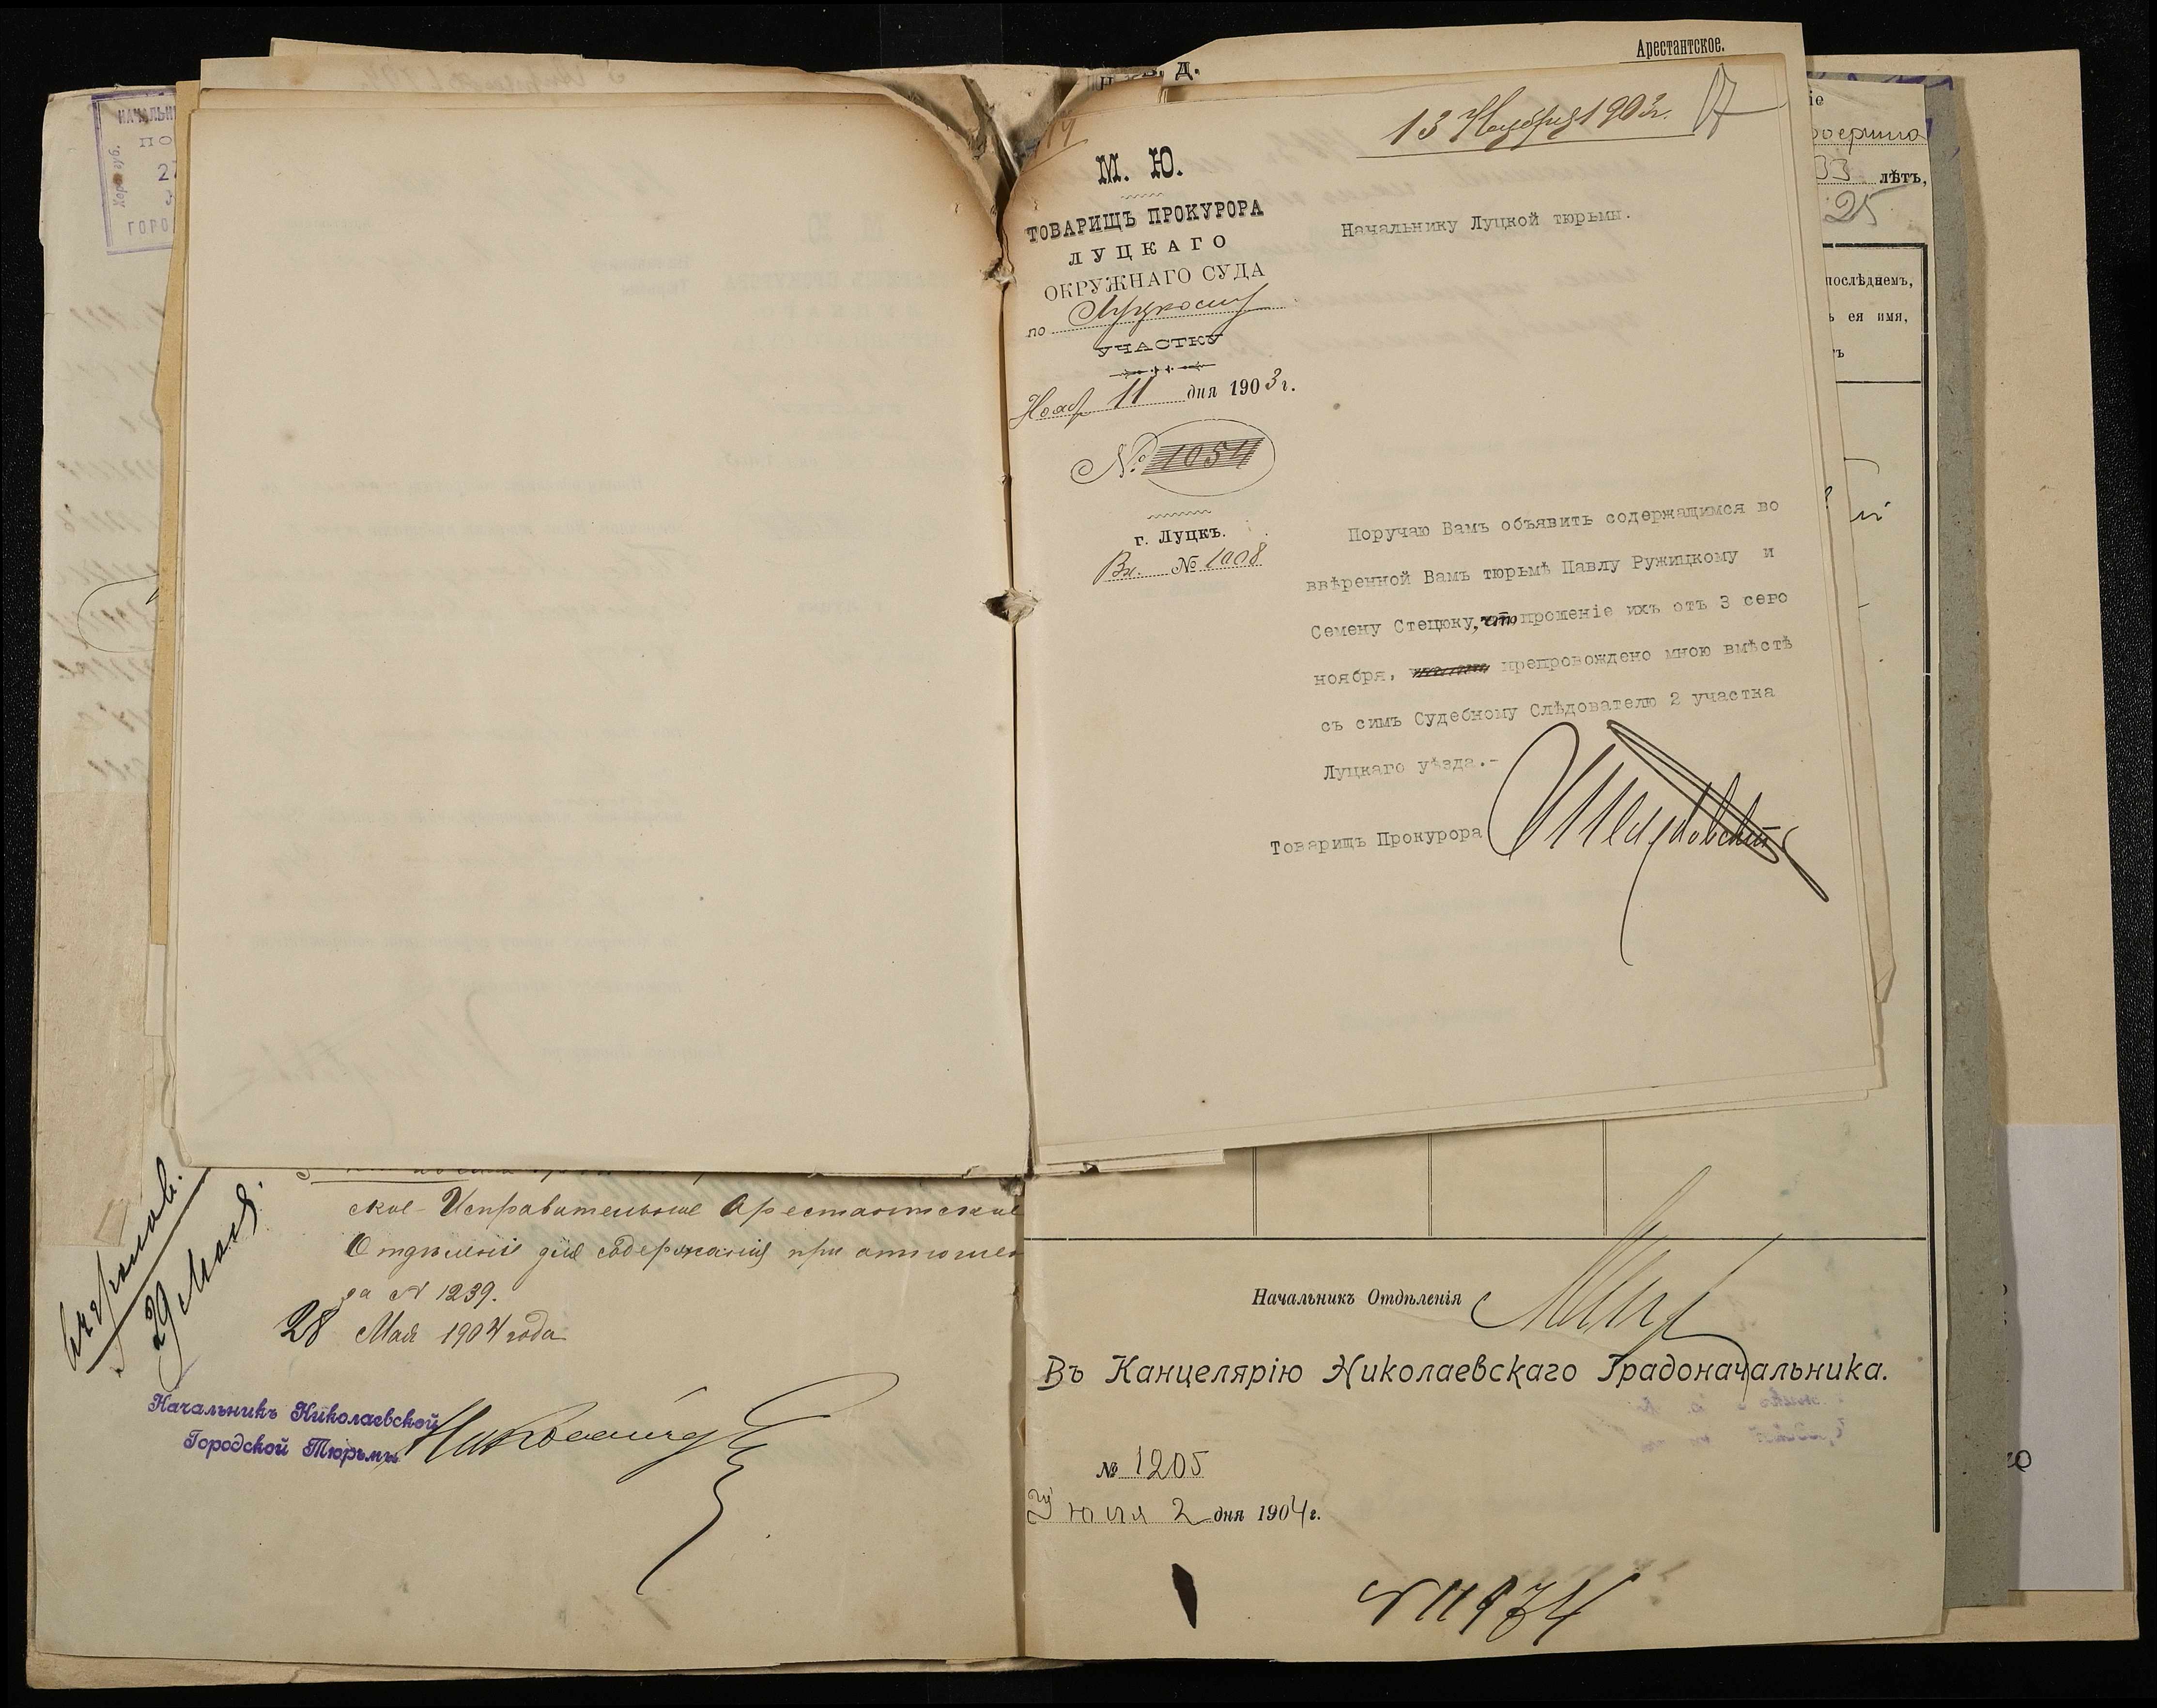 Арестантское.
13 Ноября 1903 г. 17
14
М. Ю.
ТОВАРИЩЪ ПРОКУРОРА
ЛУЦКАГО
ОКРУЖНАГО СУДА
по Луцкому
УЧАСТКУ
Нояб 11 дня 1903 г.
№ 1054
г. Луцкъ.
Вх. № 1008
Начальнику Луцкой тюрьмы.
Поручаю Вамъ объявить содержащимся во
ввѣренной Вамъ тюрьмѣ Павлу Ружицкому и
Семену Стецюку, что прошеніе ихъ отъ 3 сего
ноября, препровождено мною вмѣстѣ
съ симъ Судебному Слѣдователю 2 участка
Луцкаго уѣзда.-
Товарищъ Прокурора
33 лѣтъ,
25
послѣднемъ,
ея имя,
ское Исправительное Арестантское
Отдѣленіе для содержанія при
за № 1239.
28 Мая 1904 года
29 Мая
Начальникъ Николаевской
Городской Тюрьмы
Начальникъ Отдѣленія
Въ Канцелярію Николаевскаго Градоначальника.
№ 1205
Іюля 2 дня 1904 г.